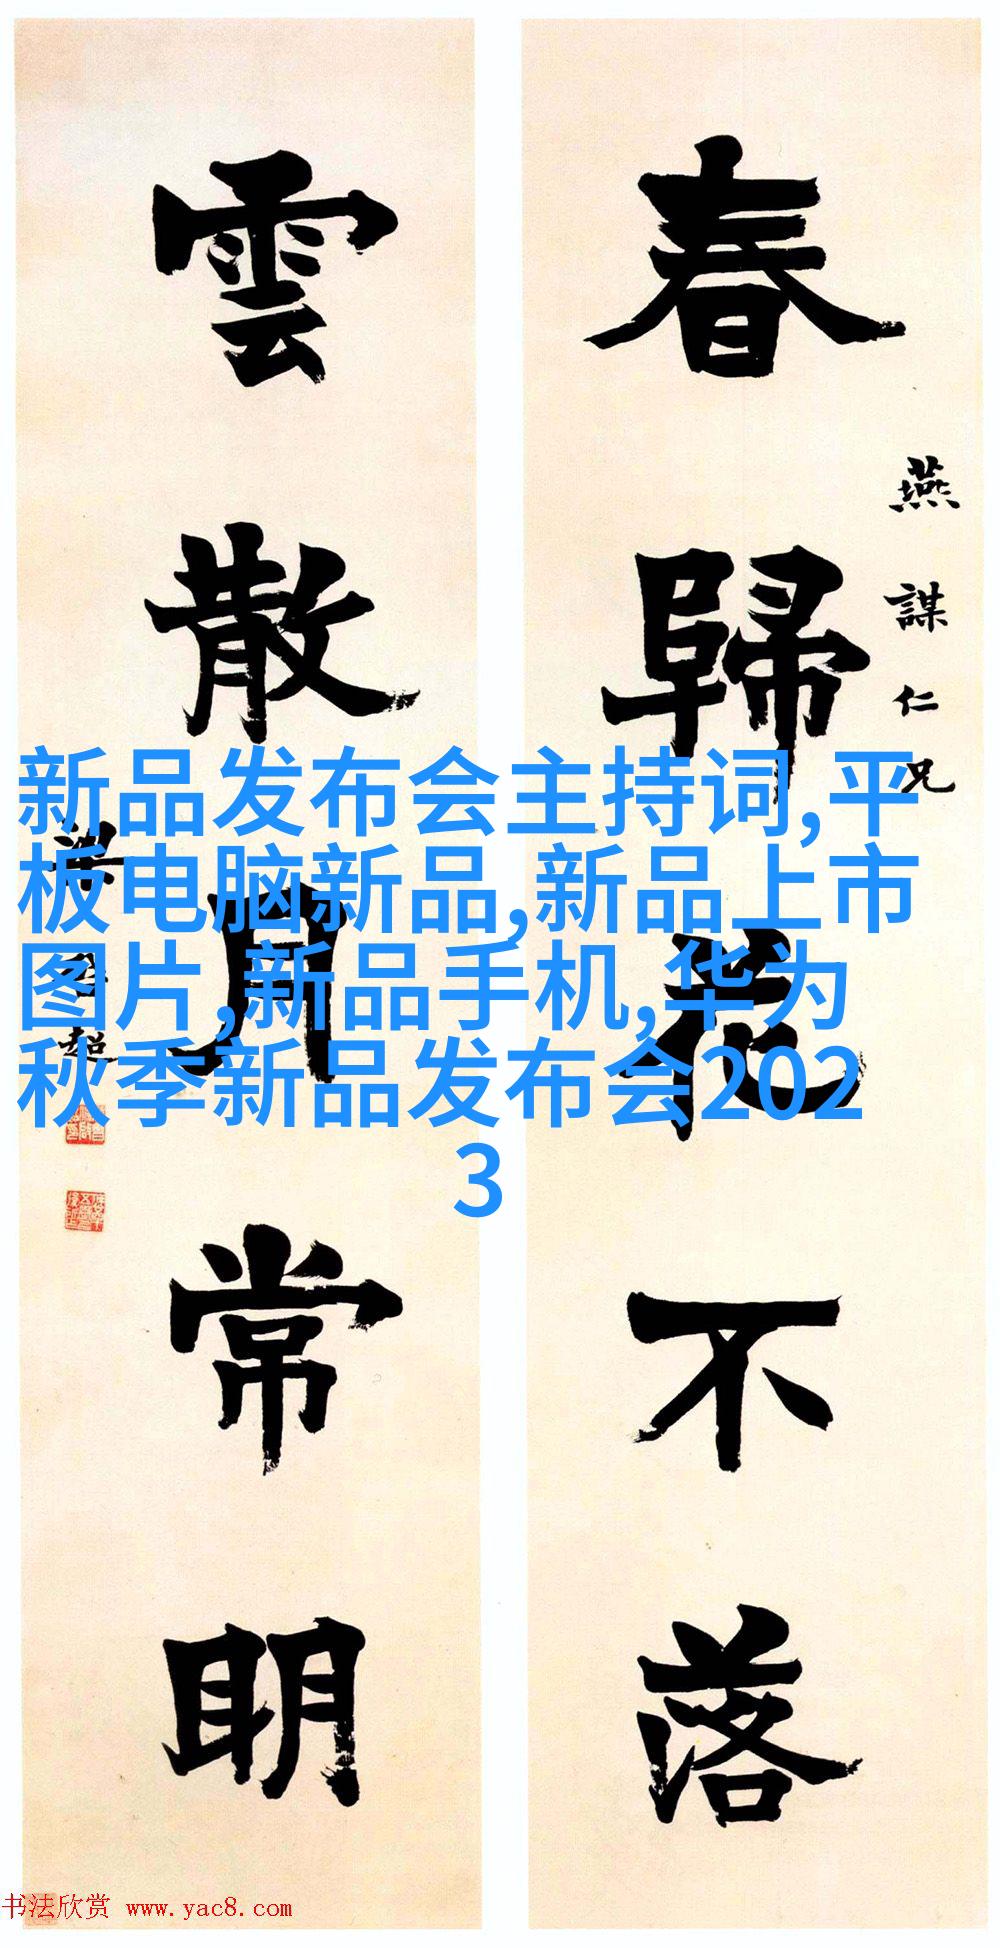 春歸花不落
燕謀仁兄
雲散月常明
梁啟超
新品发布会主持词,平
板电脑新品,新品上市
图片,新品手机,华为
秋季新品发布会202
3
书法欣赏 www.yac8.com